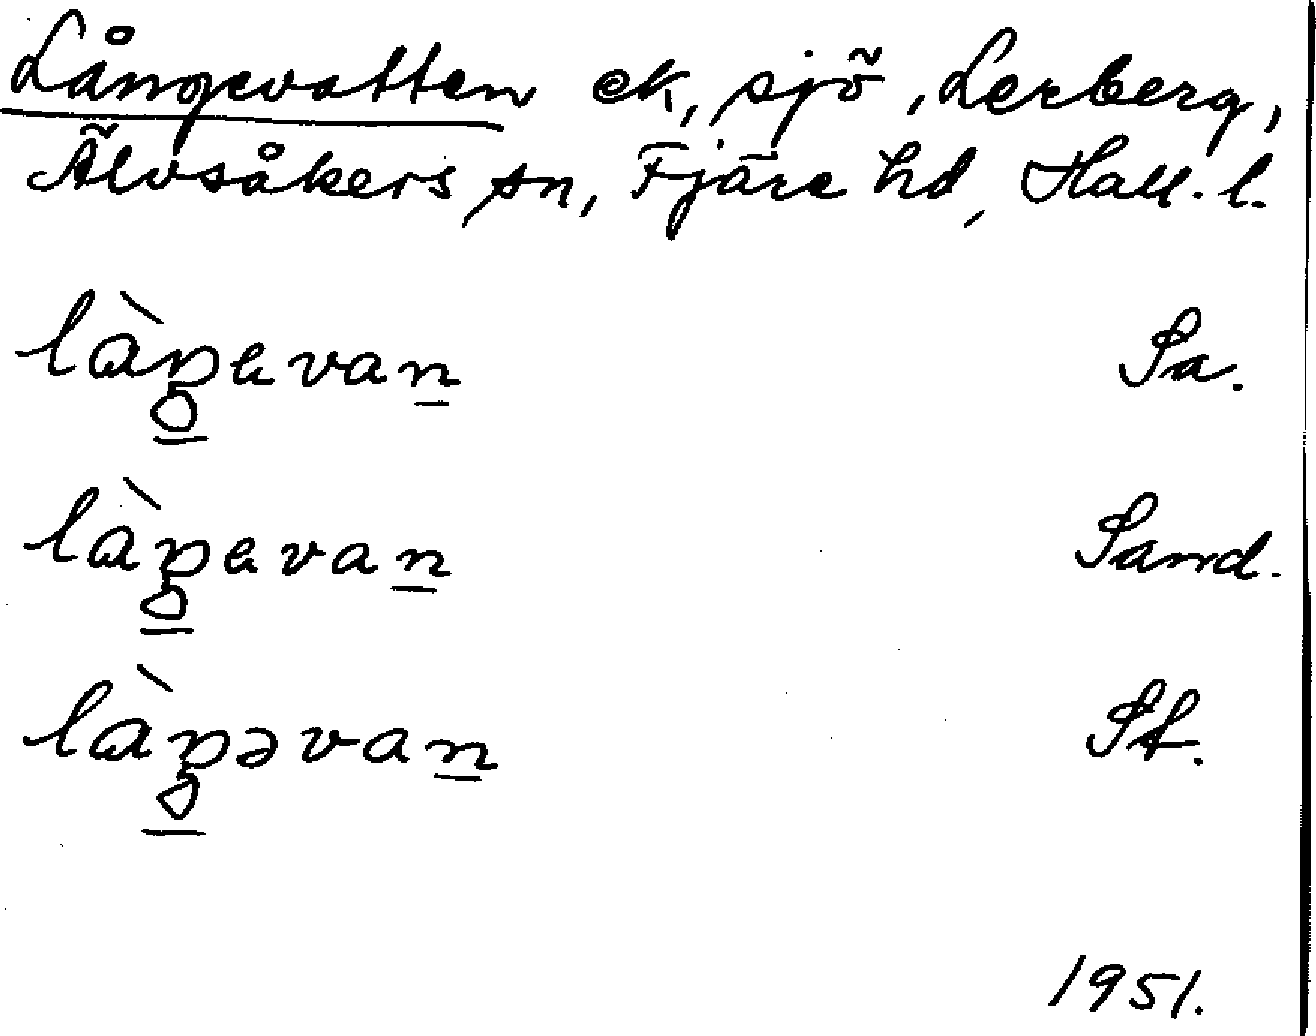 Långevatten ek, sjö, Lerberg,
Älvsåkers sn, Fjäre hd, Hall. l.
làŋevan Sa.
làŋevan Sand.
làŋəvan St.
1951.